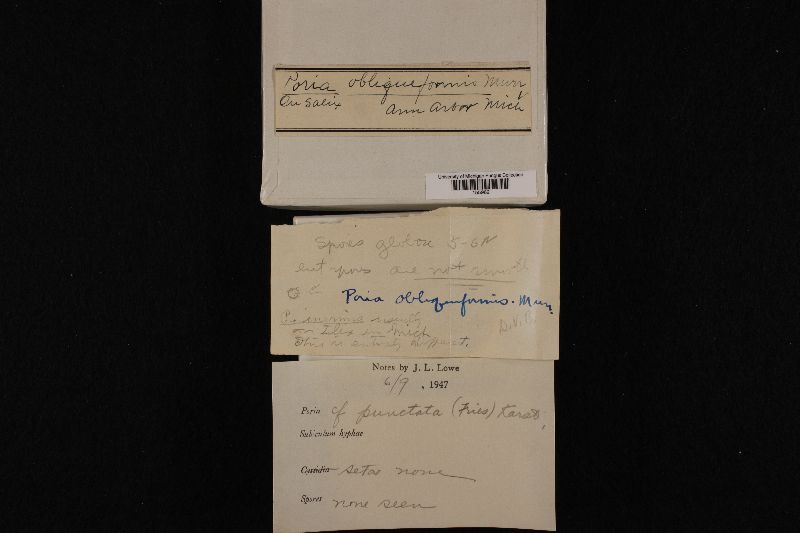 Poria obliqueformis Murr
On Salix
Ann Arbor Mich
University of Michigan Fungus Collection
Spores globose 5-6µ
but spores are not smooth
Poria obliqueformis. Murr.
P. inermis usually
on Ilex in Mich
This is entirely different.
D.V.B.
Notes by J. L. Lowe
6/9, 1947
Poria cf punctata (Fries) Karst,
Subiculum hyphae
Cystidia setae none
Spores none seen